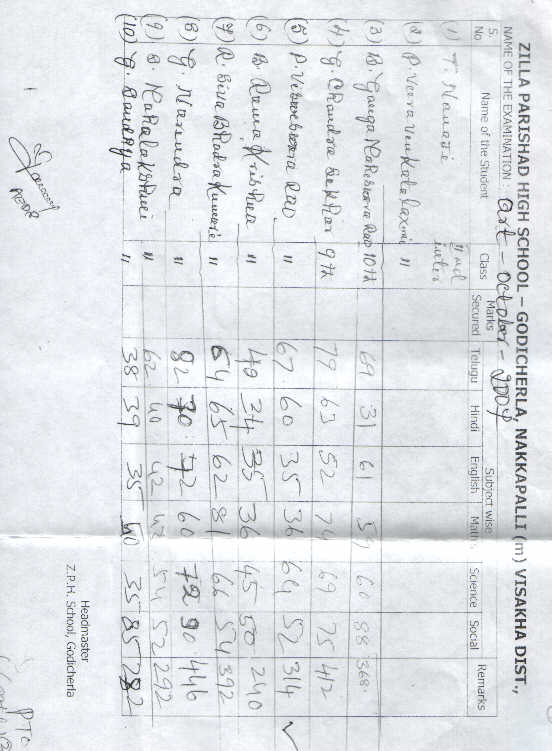 ZILLA PARISHAD HIGH SCHOOL – GODICHERLA, NAKKAPALLI (m) VISAKHA DIST.,
NAME OF THE EXAMINATION : Qrt - October - 2004
S. No Name of the Student Class Marks Secured Subject wise Remarks
Telugu Hindi English Maths Science Social
(1) T. Nanaji 2nd inter
(2) P. Veera Venkata Laxmi "
(3) B. Ganga Maheswara Rao 10th 69 31 61 59 60 88 368
(4) G. Chandra Sekhar 9th 79 63 52 74 69 75 412
(5) P. Visweswara Rao " 67 60 35 36 64 52 314
(6) B. Rama Krishna " 49 24 35 36 45 50 240
(7) R. Siva Bhadra Kumari " 64 65 62 81 66 54 392
(8) G. Narendra " 82 70 72 60 72 90 446
(9) B. Mahalakshmi " 62 40 42 42 54 52 292
(10) G. Sandhya " 38 39 35 50 35 85 282
Headmaster
Z.P.H. School, Godicherla
PTO